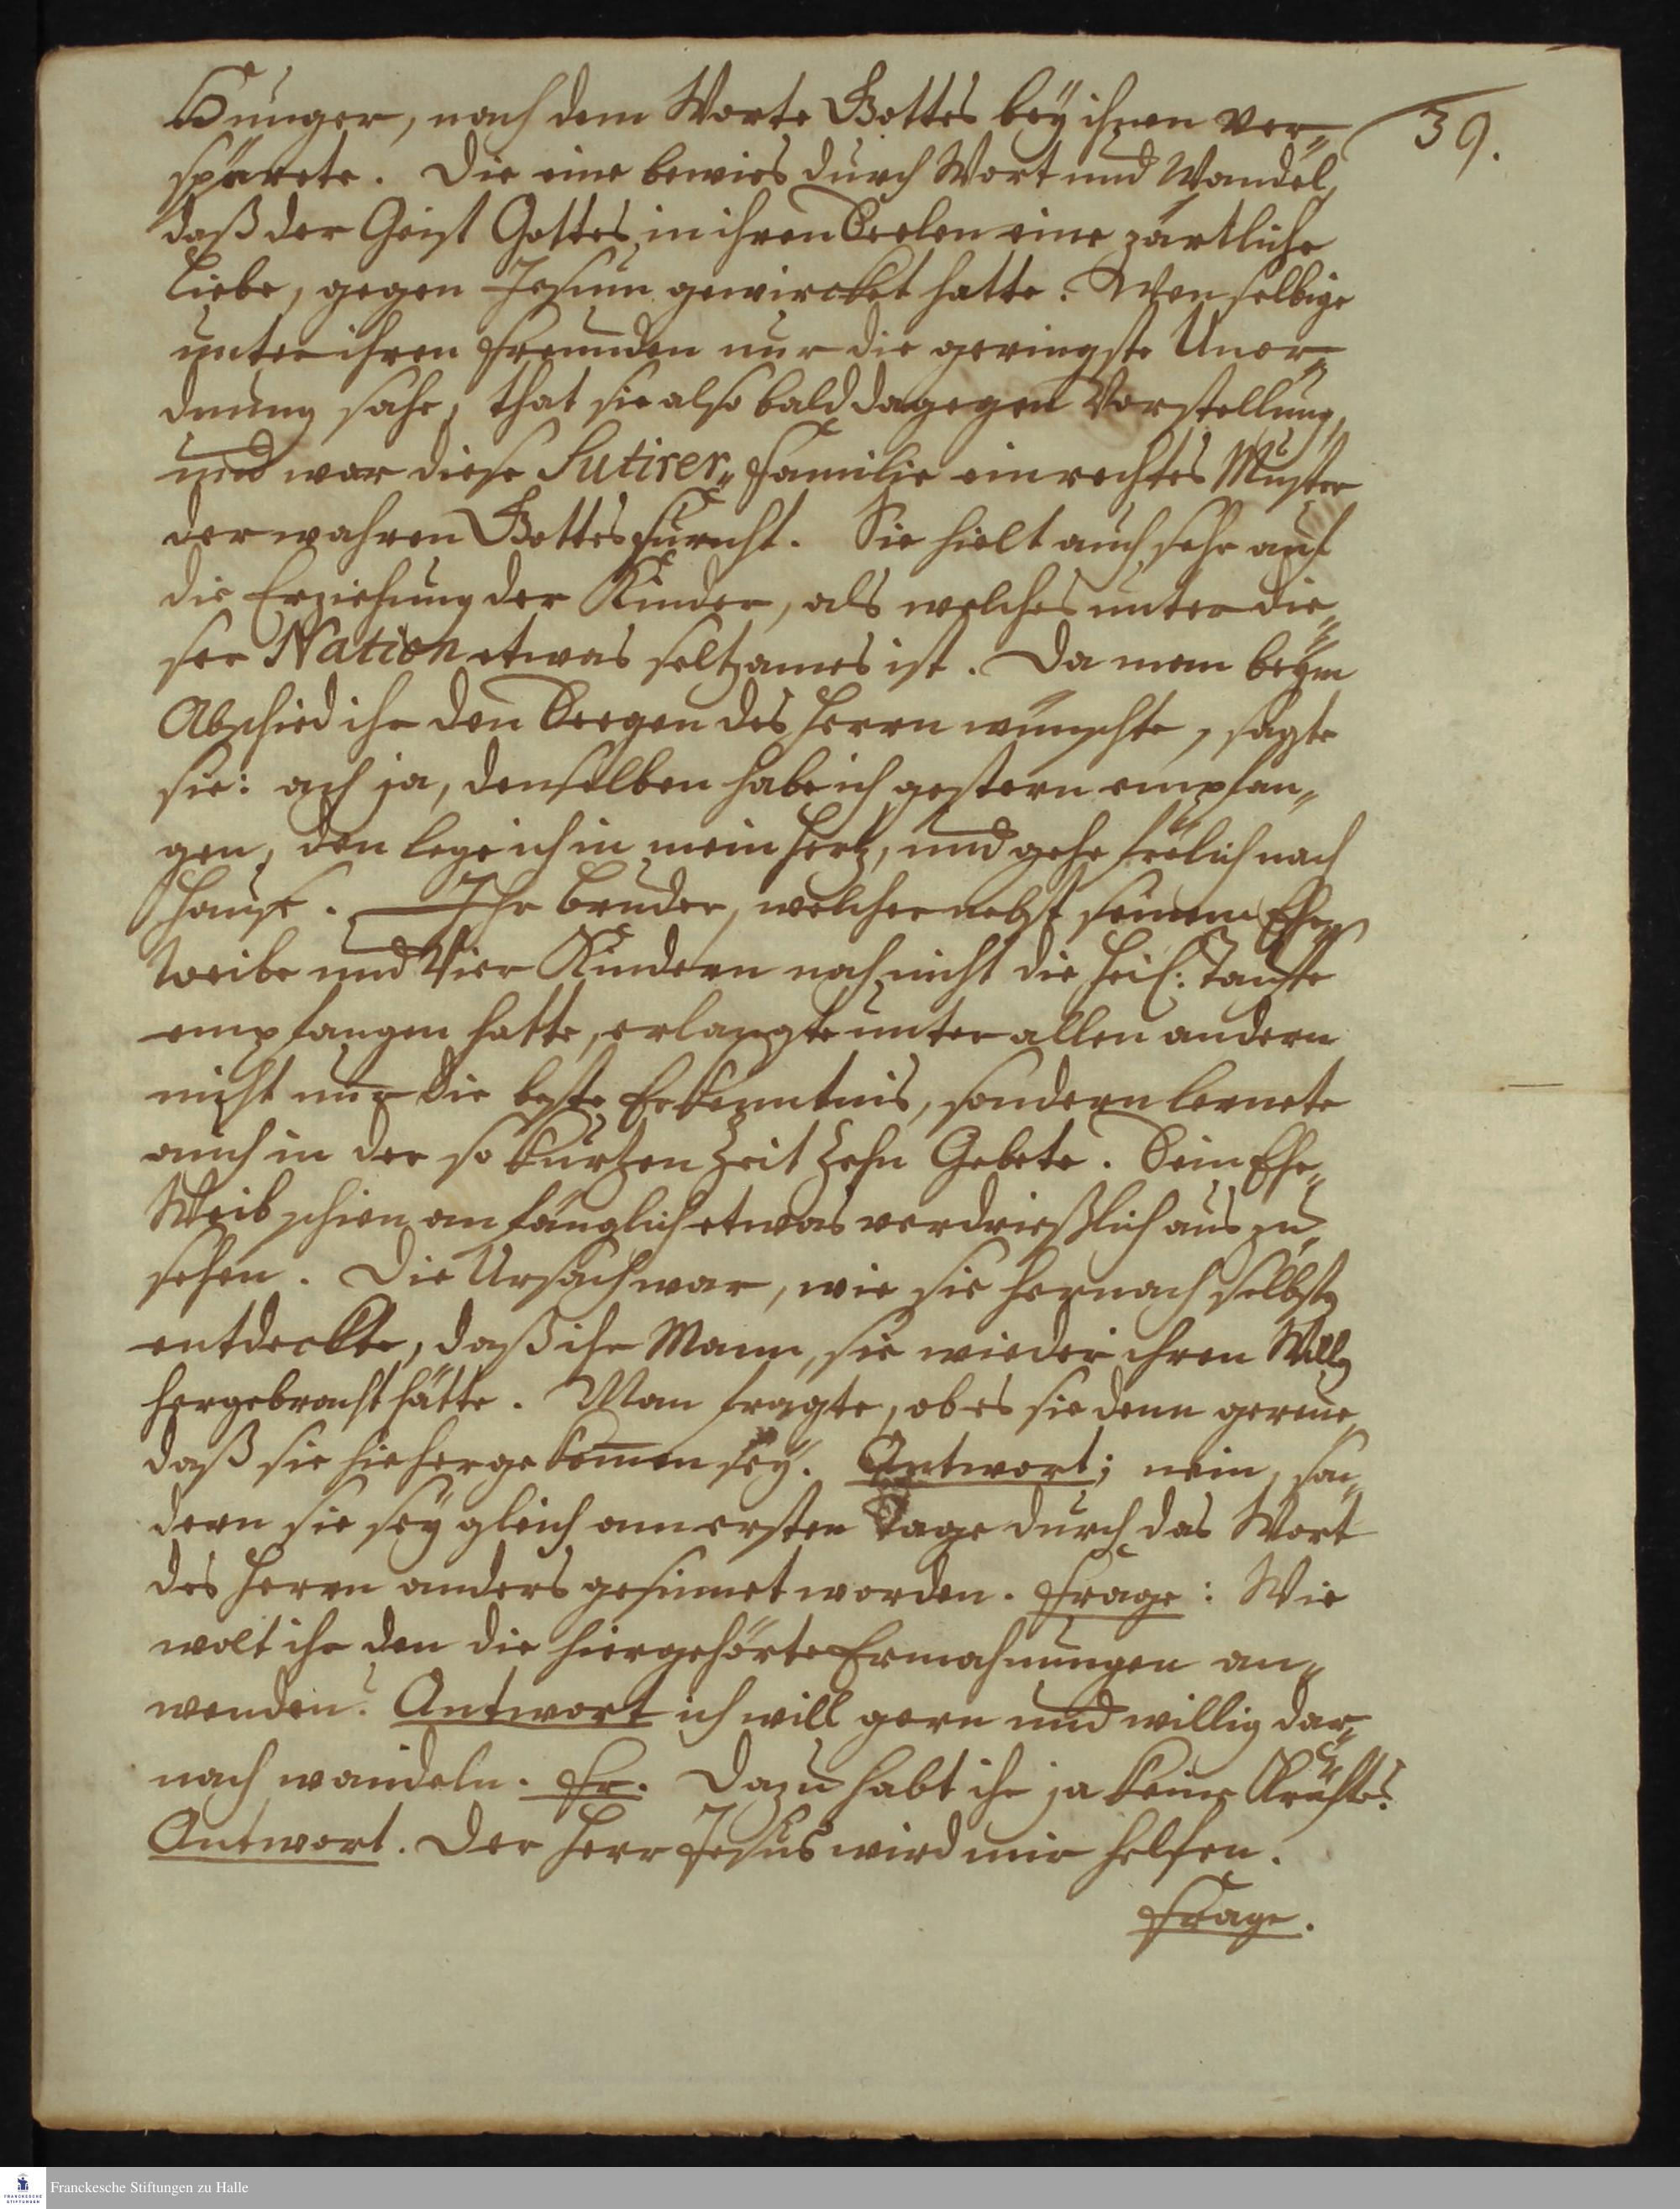 39.
Hunger, nach dem Worte Gottes bey ihnen ver„
spürete. Die eine bewies durch Wort und Wandel,
daß der Geist Gottes in ihren Seelen eine zärtliche
Liebe, gegen Jesum gewircket hatte. Wen selbige
unter ihren Freunden nur die geringste Unor„
dnung sahe, that sie also bald dagegen Vorstellung,
und war diese Sutirer„ Familie ein rechtes Muster
der wahren Gottesfurcht. Sie hielt auch sehr auf
die Erziehung der Kinder, als welches unter die„
ser Nation etwas seltzames ist. Da man beym
Abschied ihr den Seegen des Herrn wünschte, sagte
sie: ach ja, denselben habe ich gestern empfan„
gen, den lege ich in mein Hertz, und gehe frölich nach
Hause. Ihr Bruder, welcher nebst seinem Ehe„
Weibe und Vier Kindern noch nicht die Heil: Tauffe
empfangen hatte, erlangte unter allen andern
nicht nur die beste Erkenntnis, sondern lernete
auch in der so kurtzen Zeit Zehn Gebete. Sein Ehe„
Weib schien anfänglich etwas verdrießlich aus zu
sehen. Die Ursach war, wie sie hernach selbst
entdeckte, daß ihr Mann, sie wieder ihren Willen
hergebracht hätte. Man fragte, ob es sie denn gereue,
daß sie hieher gekom̅en sey. Antwort; nein, son„
dern sie sey gleich am ersten Tage durch das Wort
des Herrn anders gesinnet worden. Frage: Wie
wolt ihr den die hier gehörte Ermahnungen an„
wenden? Antwort ich will gern und willig dar„
nach wandeln. Fr. Dazu habt ihr ja keine Kräfte?
Antwort. Der Herr Jesus wird mir helfen.
Frage.
Franckesche Stiftungen zu Halle
FRANCKESCHE
STIFTUNGEN